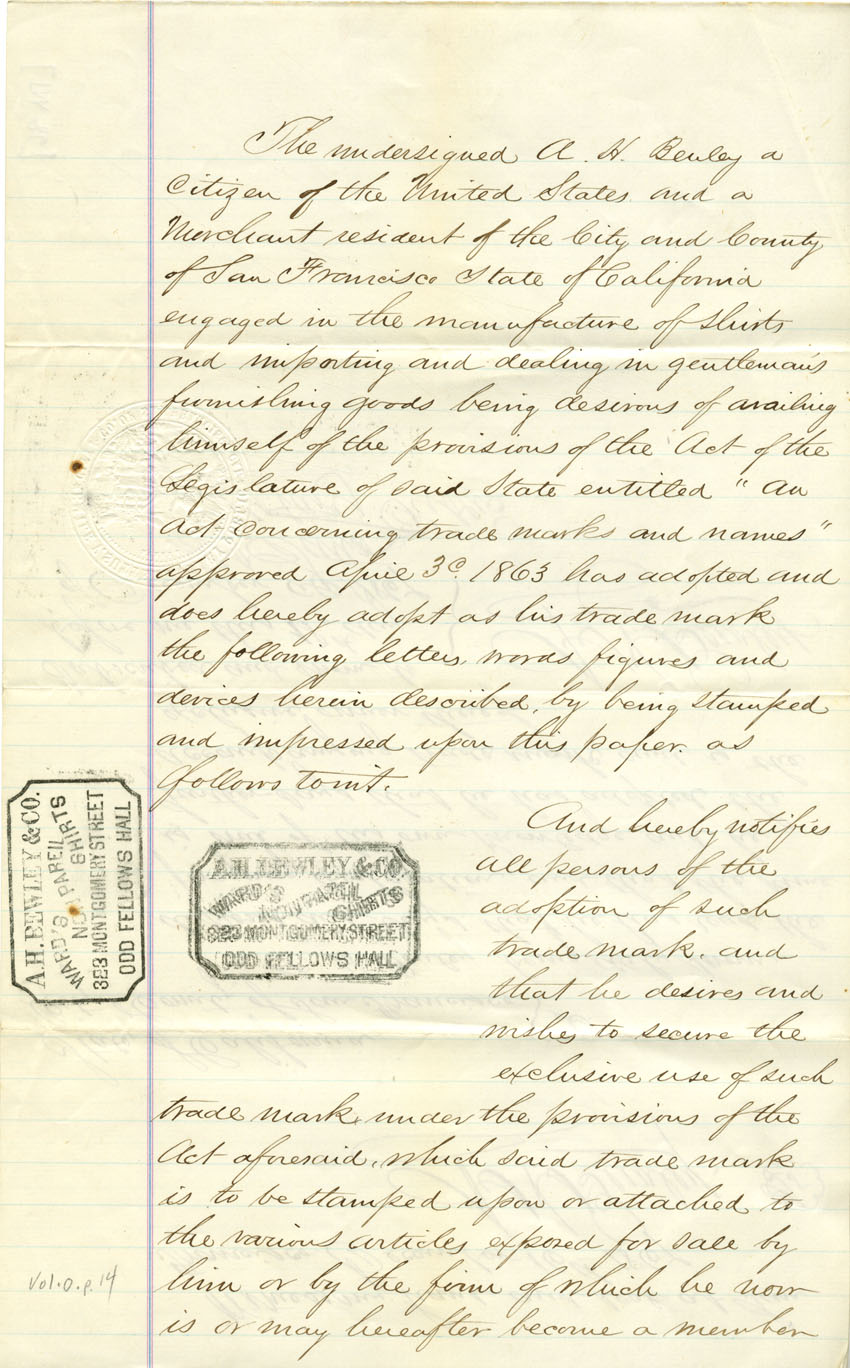 The undersigned A. H. Bewley a
Citizen of the United States and a
Merchant resident of the City and County
of San Francisco State of California
engaged in the manufacture of shirts
and importing and dealing in gentleman's
furnishing goods being desirous of availing
himself of the provisions of the Act of the
Legislature of said State entitled "An
Act concerning trade marks and names"
approved April 3d. 1863 has adopted and
does hereby adopt as his trade mark
the following letters, words figures and
devices herein described, by being stamped
and impressed upon this paper. as
follows towit.
A.H. BEWLEY & CO.
WARD'S
NONPAREIL
SHIRTS
323 MONTGOMERY STREET
ODD FELLOWS HALL
A.H. BEWLEY & CO.
WARD'S
NONPAREIL
SHIRTS
323 MONTGOMERY STREET
ODD FELLOWS HALL
And hereby notifies
all persons of the
adoption of such
trade mark. and
that he desires and
wishes to secure the
exclusive use of such
trade mark, under the provisions of the
Act aforesaid, which said trade mark
is to be stamped upon or attached to
the various articles exposed for sale by
him or by the firm of which he now
is or may hereafter become a member
Vol. O. p. 14